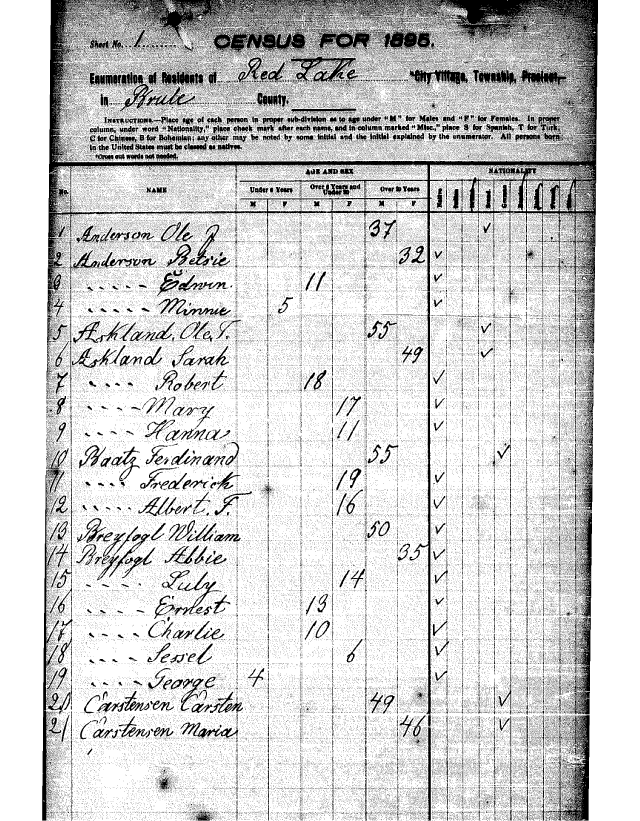 Sheet No. 1
CENSUS FOR 1895.
Enumeration of Residents of Red Lake *City Village, Township, Precinct,
in Brule County.
INSTRUCTIONS.—Place age of each person in proper sub-division as to age under "M" for Males and "F" for Females. In proper
column, under word "Nationality," place check mark after each name, and in column marked "Misc," place S for Spanish, T for Turk,
C for Chinese, B for Bohemian; any other may be noted by some initial and the initial explained by the enumerator. All persons born
in the United States must be classed as natives.
*Cross out words not needed.
No. NAME AGE AND SEX NATIONALITY
Under 6 Years Over 6 Years and Under 20 Over 20 Years
M F M F M F
1 Anderson Ole J 37 ✓
2 Anderson Betsie 32 ✓
3 " " " " " Edwin 11 ✓
4 " " " " " Minnie 5 ✓
5 Askland, Ole, T. 55 ✓
6 Askland Sarah 49 ✓
7 " " " " Robert 18 ✓
8 " " " " Mary 17 ✓
9 " " " " Hanna 11 ✓
10 Baatz Ferdinand 55 ✓
11 " " " " Frederick 19 ✓
12 " " " " Albert. F. 16 ✓
13 Breyfogl William 50 ✓
14 Breyfogl Abbie 35 ✓
15 " " " " Luly 14 ✓
16 " " " " Ernest 13 ✓
17 " " " " Charlie 10 ✓
18 " " " " Jessel 6 ✓
19 " " " " George 4 ✓
20 Carstensen Carsten 49 ✓
21 Carstensen Maria 46 ✓